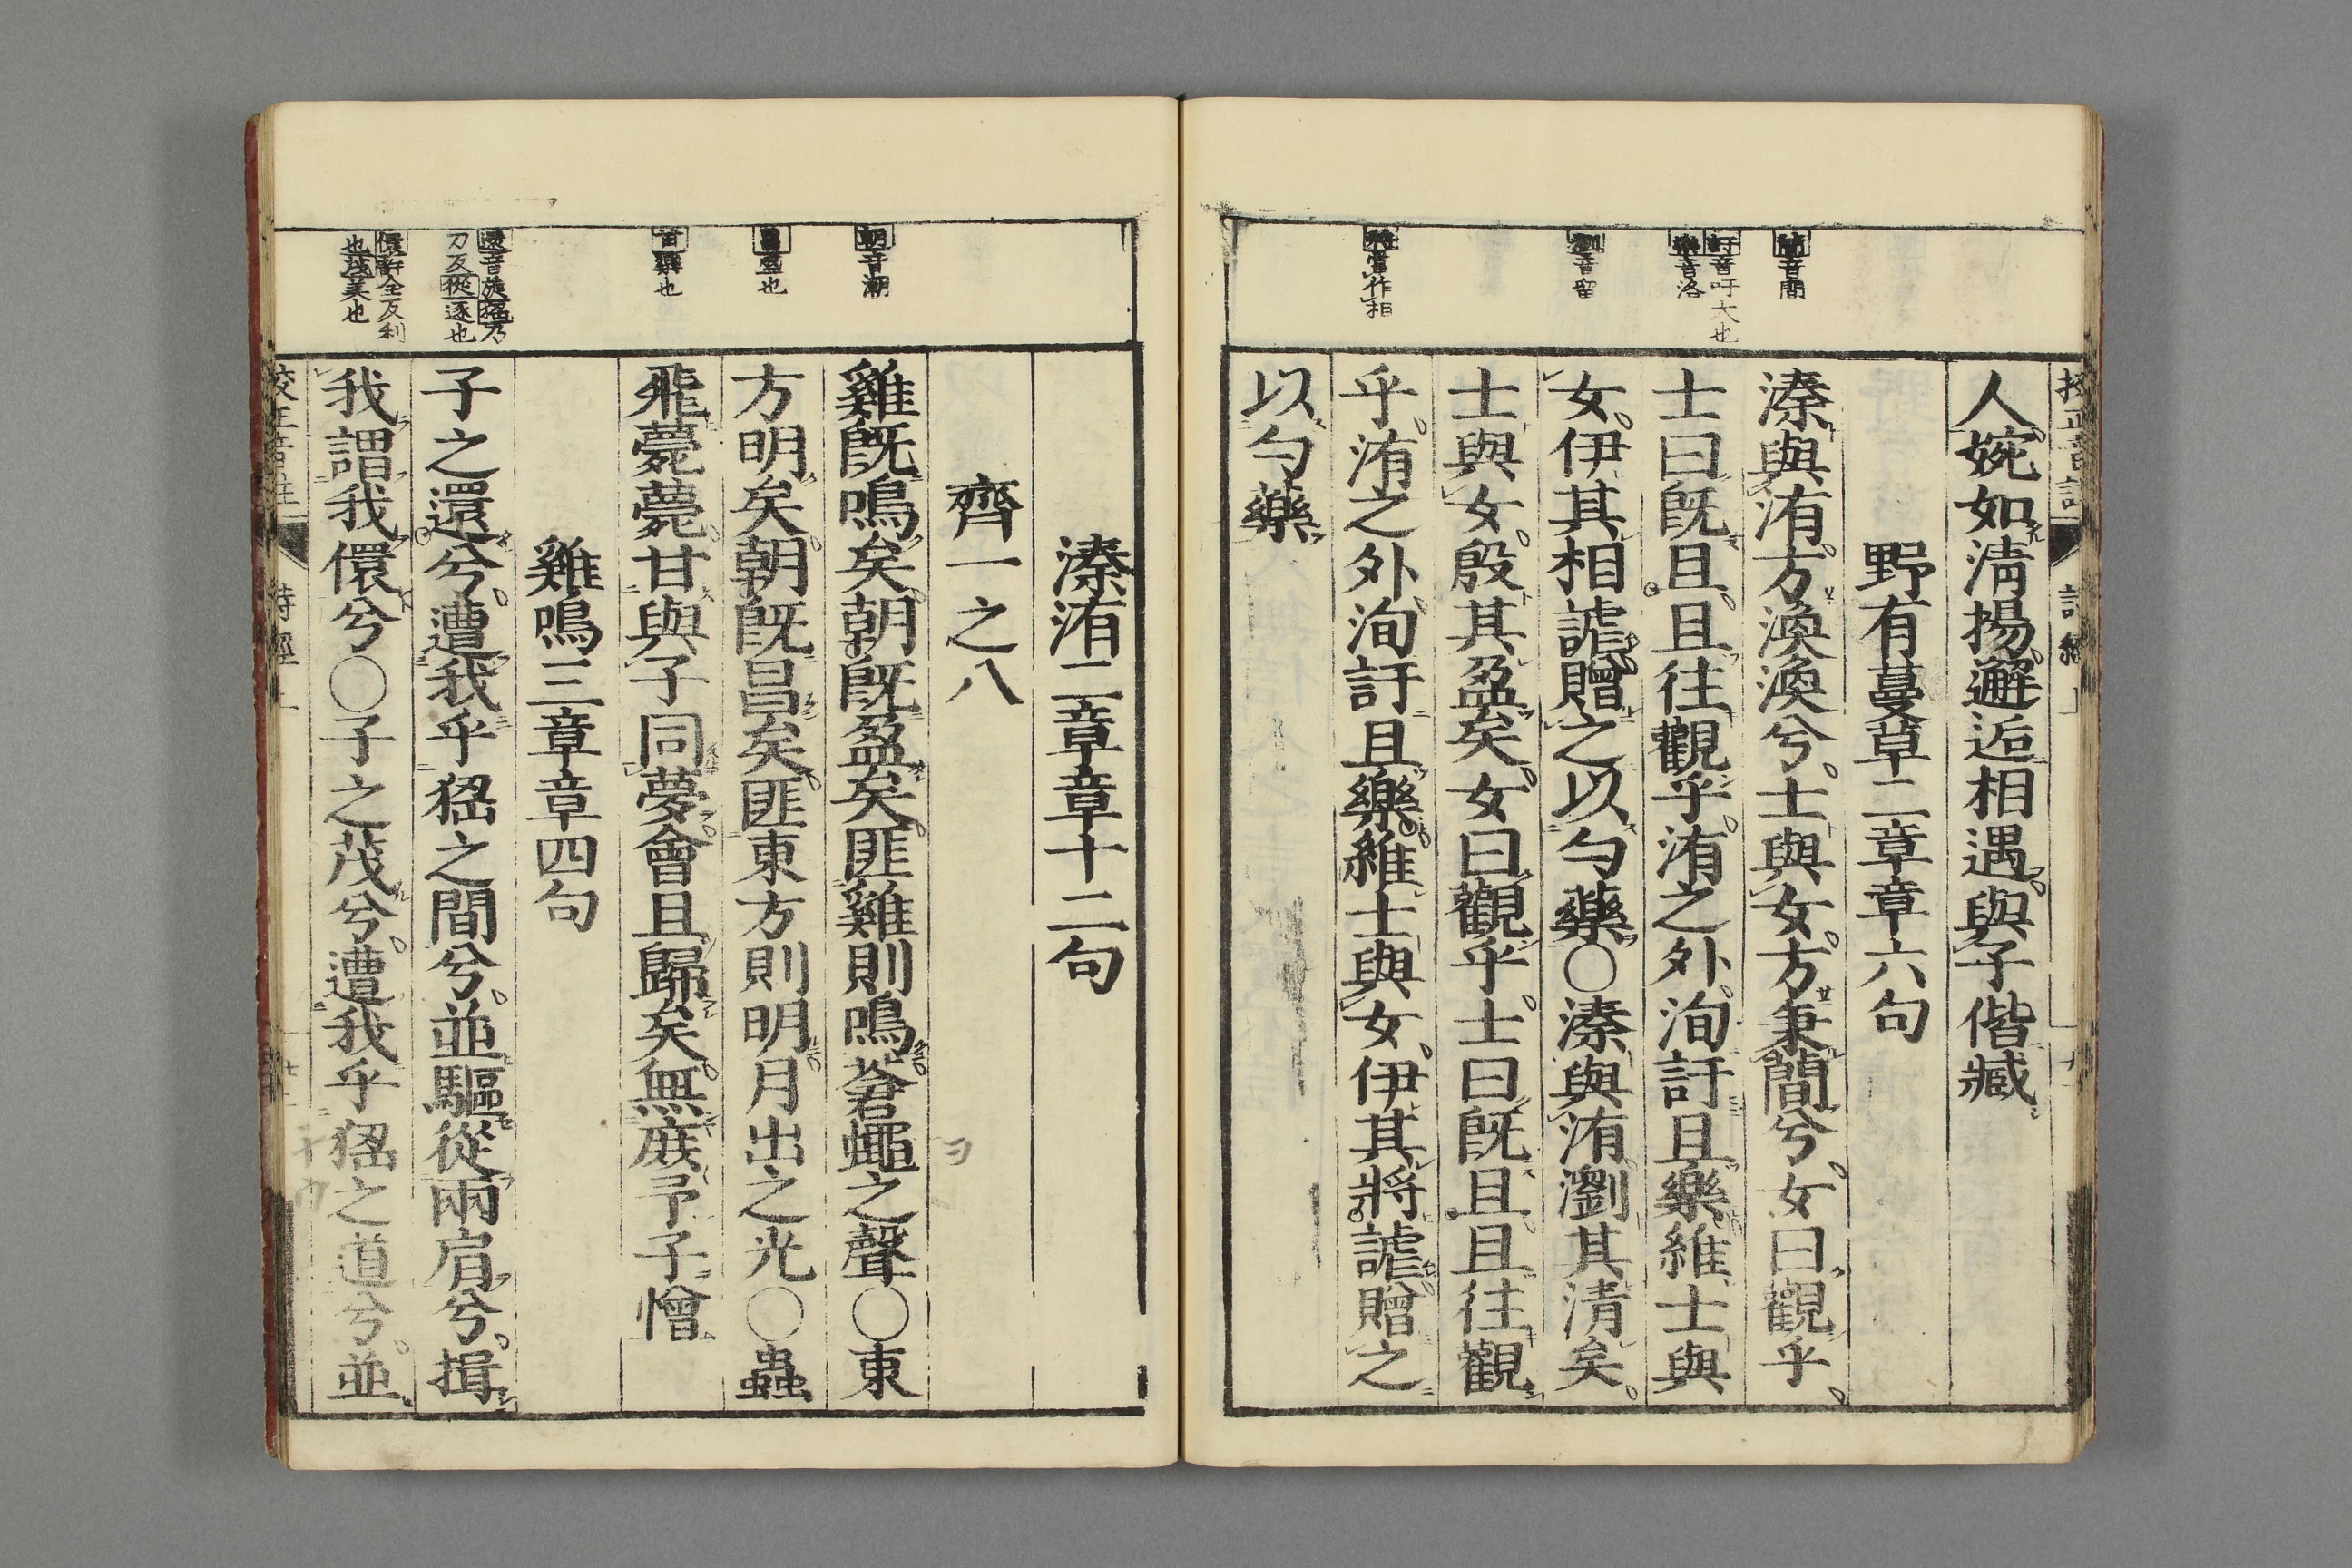 蕑音閒
訏音吁大也
樂音洛
瀏音留
將當作相
人婉如清揚邂逅相遇與子偕臧
野有蔓草二章章六句
溱與洧方渙渙兮士與女方秉蕑兮女曰觀乎
士曰既且且往觀乎洧之外洵訏且樂維士與
女伊其相謔贈之以勺藥〇溱與洧瀏其清矣
士與女殷其盈矣女曰觀乎士曰既且且往觀
乎洧之外洵訏且樂維士與女伊其將謔贈之
以勺藥
朝音潮
昌盛也
甘樂也
還音旋猺乃
刀反從逐也
儇許全反利
也茂美也
溱洧二章章十二句
齊一之八
雞既鳴矣朝既盈矣匪雞則鳴蒼蠅之聲〇東
方明矣朝既昌矣匪東方則明月出之光〇蟲
飛薨薨甘與子同夢會且歸矣無庶予子憎
雞鳴三章章四句
子之還兮遭我乎猺之間兮並驅從兩肩兮揖
我謂我儇兮〇子之茂兮遭我乎猺之道兮並